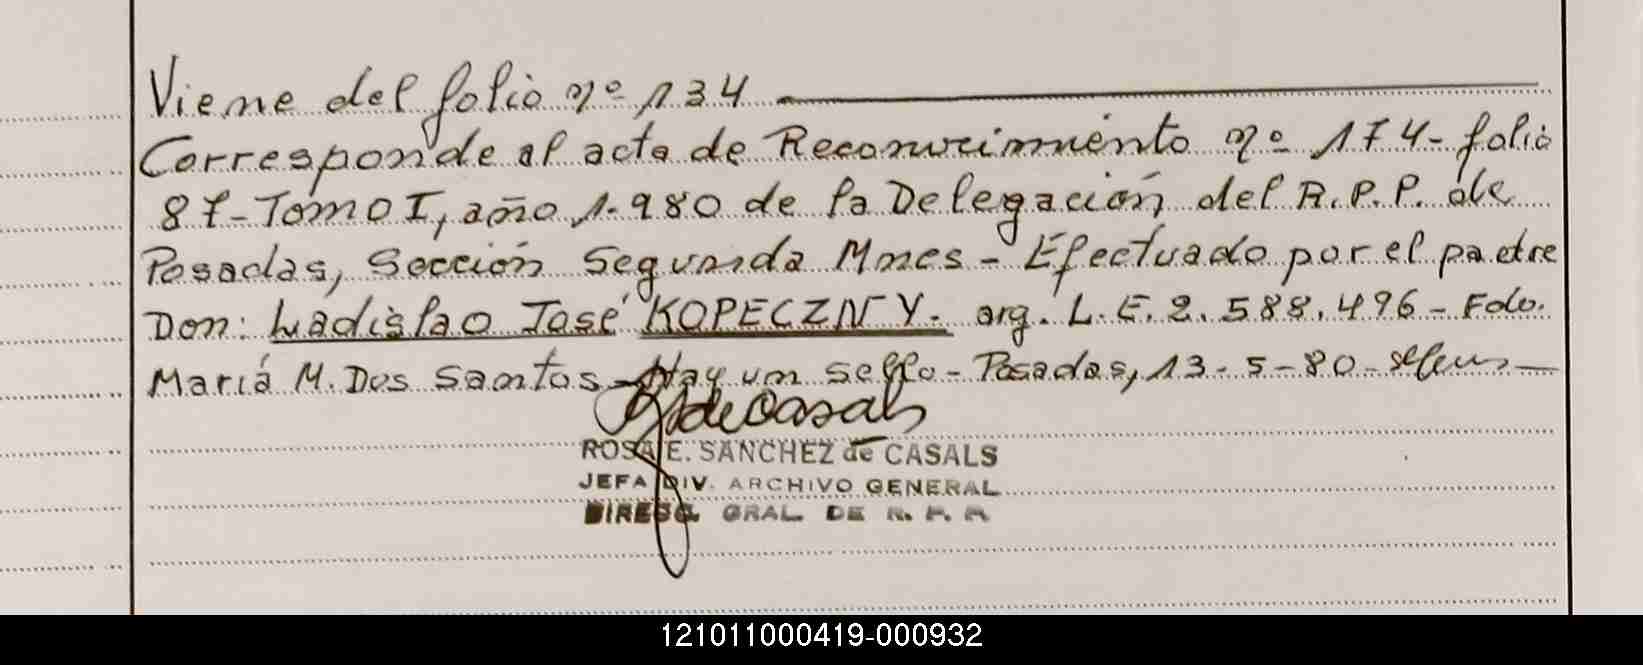 Viene del folio nº 134
Corresponde al acta de Reconocimiento nº 174 - folio
87 - Tomo I, año 1.980 de la Delegación del R.P.P. de
Posadas, Sección Segunda Mnes - Efectuado por el padre
Don: Ladislao José KOPECZNY. arg. L.E. 2.588.496 - Fdo.
María M. Dos Santos - Hay un sello - Posadas, 13-5-80 -
deCasals
ROSA E. SANCHEZ de CASALS
JEFA DIV. ARCHIVO GENERAL
DIRECC. GRAL. DE R. P. P.
121011000419-000932